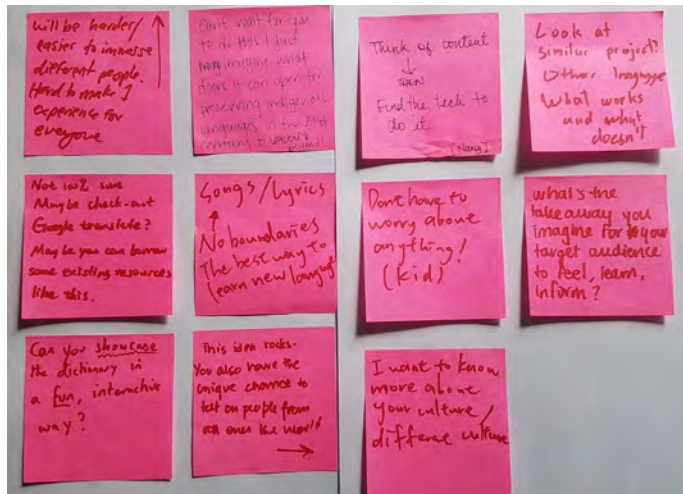 will be harder/
easier to immerse
different people.
Hard to make 1
experience for
everyone
Can't wait for you
to do this I just
imagine what
doors it can open for
preserving indigenous
languages in the 21st
century +
beyond!
Think of content
↓
THEN
Find the tech to
do it
[Nancy]
Look at
similar project?
Other language
What works
and what
doesn't
Not 100% sure
Maybe check-out
Google translate?
Maybe you can borrow
some existing resources
like this.
Songs/Lyrics
↑
No boundaries
The best way to
learn new language
Dont have to
worry about
anything!
(kid)
what's the
take away you
imagine for your
target audience
to feel, learn,
inform?
Can you showcase
the dictionary in
a fun, interactive
way?
This idea rocks.
You also have the
unique chance to
test on people from
all over the world
→
I want to know
more about
your culture/
different culture